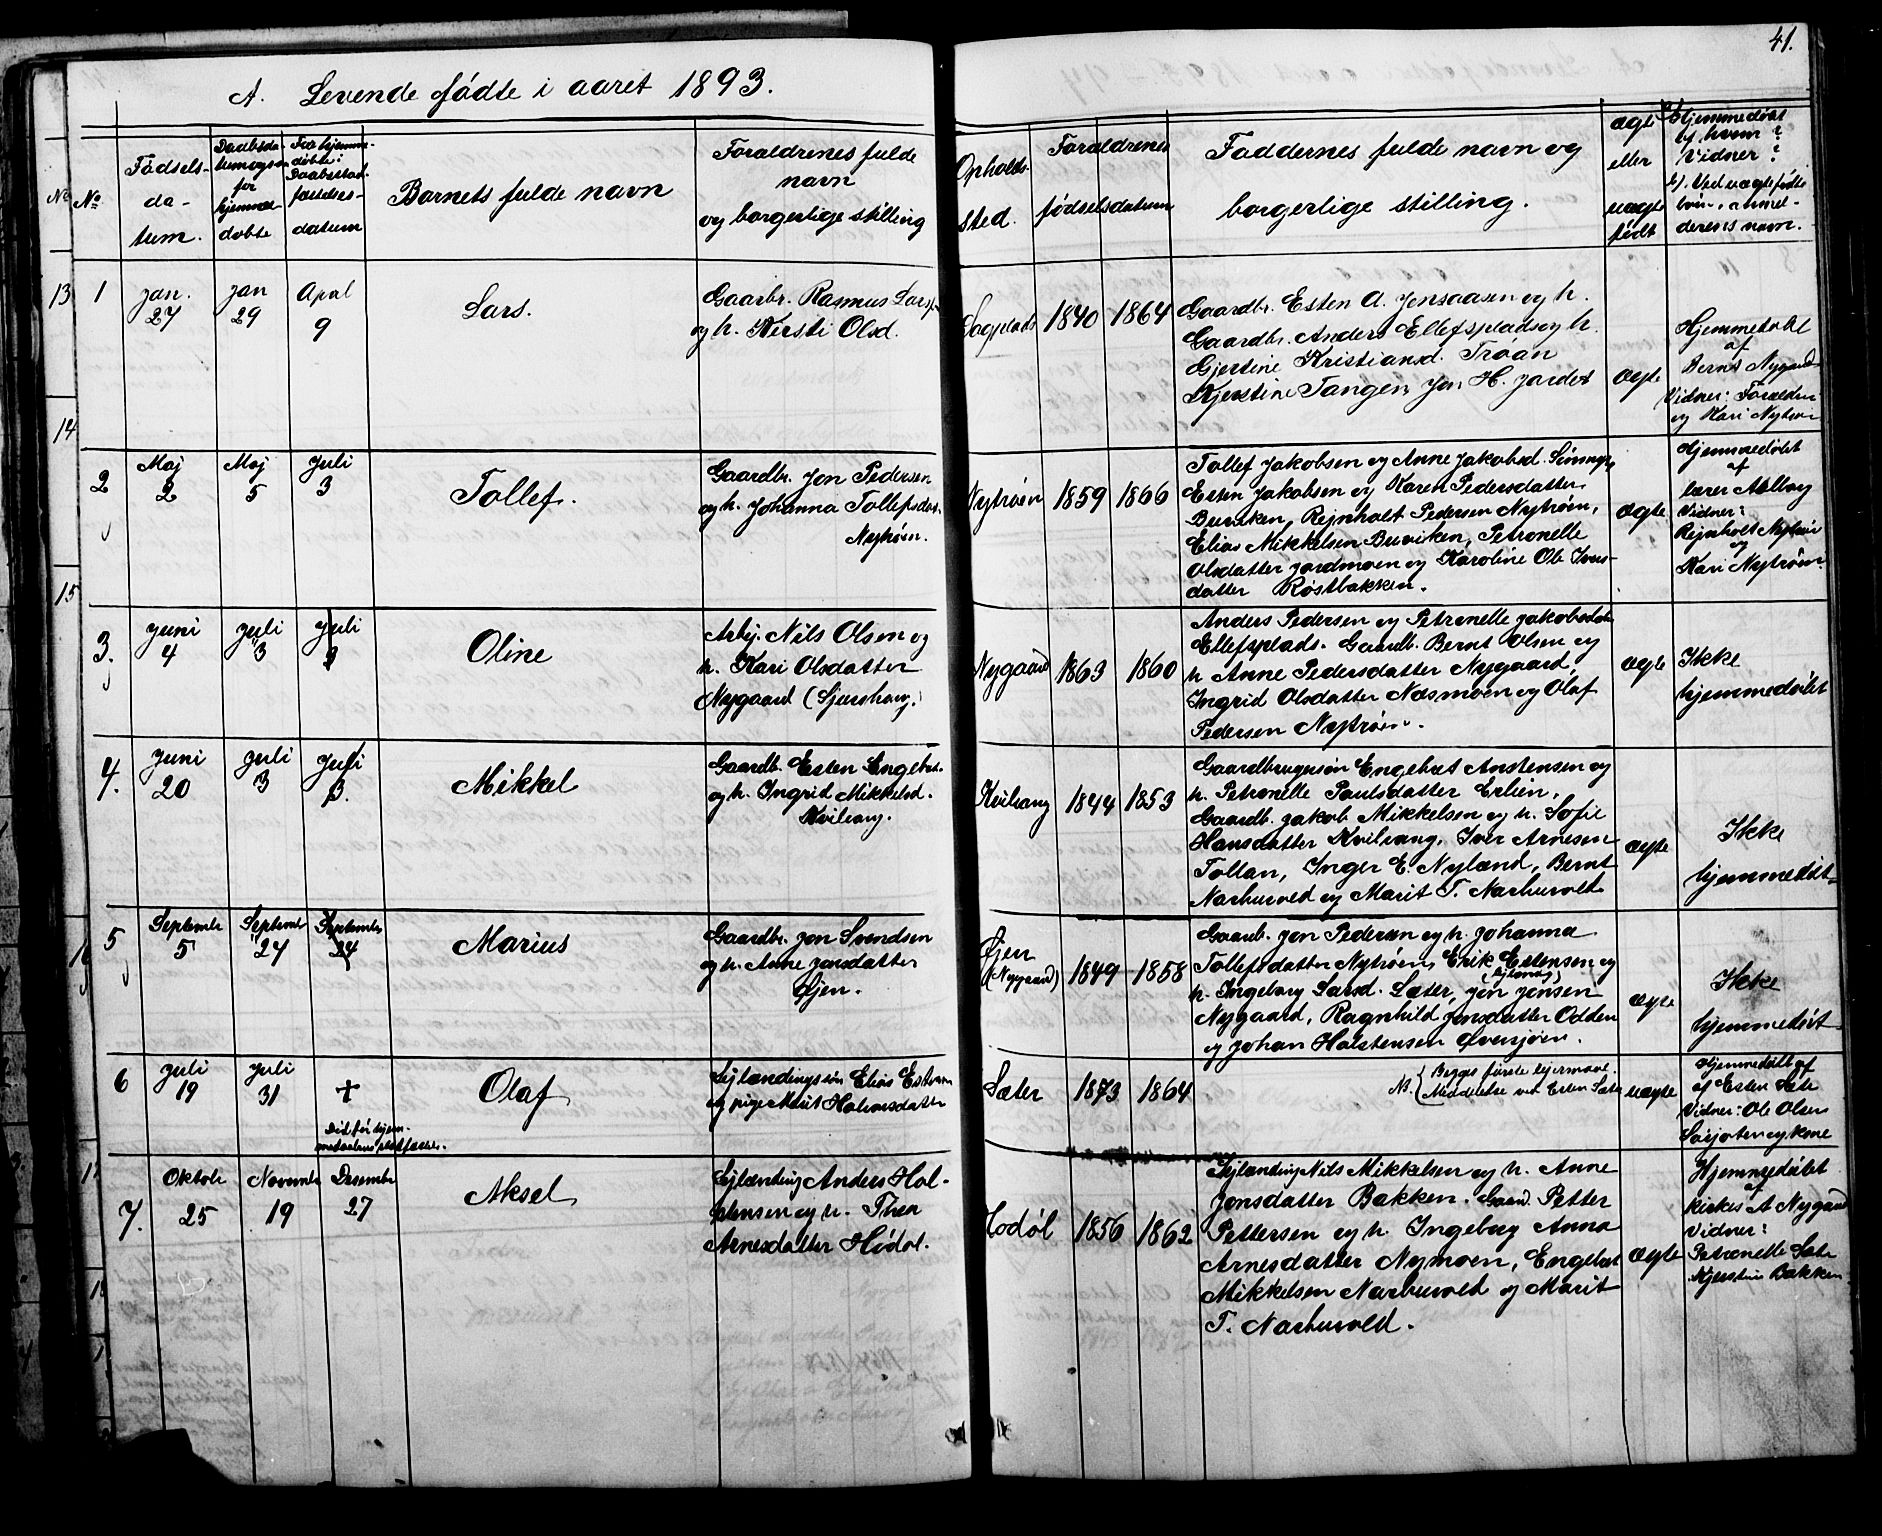 41.
A. Levende fødte i aaret 1893.
No
No
Fødsels-
da-
tum.
for
hjemme
døbte
datum
Barnets fulde navn
Foraldrenes fulde
navn
og borgerlige stilling
Opholds-
sted.
Foraldrenes
fødselsdatum
Faddernes fulde navn og
borgerlige stilling.
ægte
eller
uægte
født
a) Hjemmedøbt
af hvem?
Vidner?
b). Ved uægte fødte
børn, anmel-
derens navn.
13
14
15
1
Jan.
27
Jan
29
April
9
Lars.
Gaardbr. Rasmus Larss.
og h. Kersti Olsd.
Sagplads
1840
1864
Gaardbr. Esten A. Jensaasen og h.
Gaardbr. Anders Ellefsplads og h.
Gjertine Kristiansd. Trøan
Kjerstine Tangen, Jon H. Jordet
ægte
Hjemmedøbt
af
Bernt Nygaard
Vidner: Forældre
og Kari Nytrøn
2
Maj
2
Maj
5
Juli
3
Tollef.
Gaardbr. Jon Pedersen
og h. Johanna Tollefsdat.
Nytrøen.
Nytrøen
1859
1866
Tollef Jakobsen og Anne Jakobsd.
Esten Jakobsen og Karen Pedersdatter
Buviken, Rejnholt Pedersen Nytrøen,
Elias Mikkelsen Buviken, Petronelle
Olsdatter Jordmoen og Karoline Ole Ivers-
datter Røstbakken.
ægte
Hjemmedøbt
af
lærer Aalbog
Vidner:
Rejnholt Nytrøn
og
Kari Nytrøen.
3.
Juni
4
Juli
3
Juli
3
Oline
Arbj. Nils Olsen og
h. Kari Olsdatter
Nygaard
Nygaard
1863
1860
Anders Pedersen og Petronelle Jakobsdat.
Ellefsplads. Gaardb. Bernt Olsen og
h. Anne Pedersdatter Nygaard,
Ingrid Olsdatter Næsmoen og Olaf
Pedersen Nytrøen.
ægte
Ikke
hjemmedøbt
4.
Juni
20
Juli
3
Juli
3.
Mikkel
Gaardb. Esten Engebr.
og h. Ingrid Mikkelsd.
Kvilvang.
Kvilvang
1844
1853
Gaardbrugersøn Engebret Anstensen og
h. Petronelle Paulsdatter Erlien,
Gaardb. Jakob Mikkelsen og h. Sofie
Hansdatter Kvilvang, Iver Arnesen
Tollan, Inger E. Nyland, Bernt
Narbuvold og Marit T. Narbuvold
ægte
Ikke
hjemmedøbt
5
September
5
September
24
September
24
Marius
Gaardbr. Jon Svendsen
og h. Anne Jonsdatter
Øjen.
Øjen
(Nygaard)
1849
1858
Gaardb. Jon Pedersen og h. Johanna
Tollefsdatter Nytrøen, Erik Estensen og
h. Ingeborg Larsd. Sæter, Jon Jonsen
Nygaard, Ragnhild Jonsdatter Odden
og Johan Halstensen Øversjøen.
ægte
Ikke
hjemmedøbt
6
Juli
19
Juli
31
+
Død før hjem-
medaabens stadfæstelse.
Olaf
Lejlændingsøn Elias Estensen
og pige Marit Halvorsdatter
Sæter
1873
1864
NB. Begges første lejermaal.
Meddelelse ved Esten Sæter
uægte
Hjemmedøbt af
af Esten Sæter
Vidner: Ole Olsen
7.
Oktober
25
November
19
Desember
27
Aksel
Lejlænding Anders Hal-
stensen og h. Thea
Arnesdatter Hodøl.
Hodøl
1856
1862
Lejlænding Nils Mikkelsen og h. Anne
Jonsdatter Bakken. Gaard. Petter
Pettersen og h. Ingeborg Anna
Arnesdatter Nymoen, Engebret
Mikkelsen Narbuvold og Marit
T. Narbuvold.
ægte
Hjemmedøbt
af
Kirkes. A Nygaard
Vidner:
Petronelle Sæter
Kjerstine Bakken